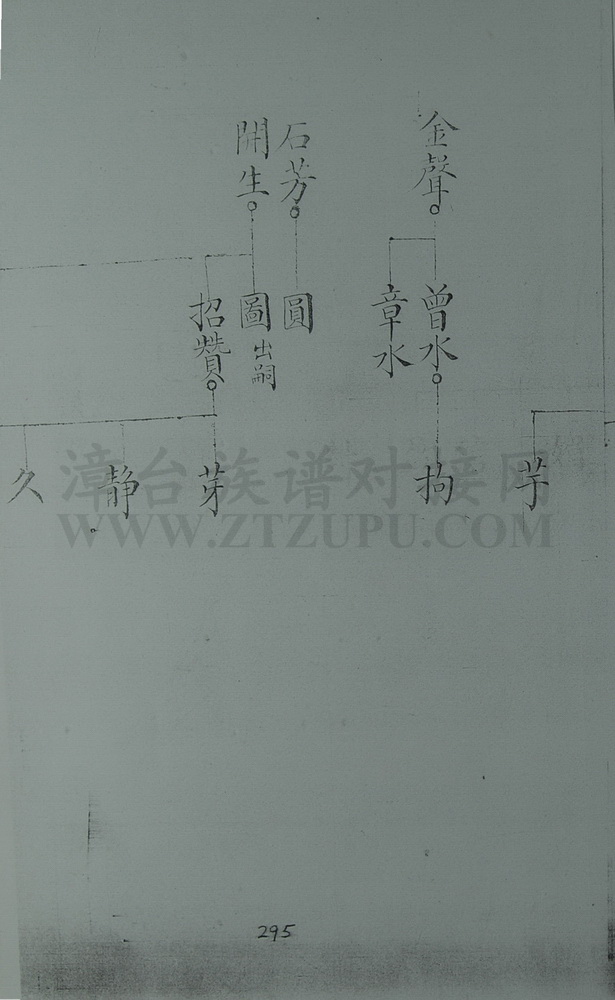 金聲
石芳
開生
曾水
章水
圓
圖 出嗣
招贊
芋
拘
芽
静
久
漳台族谱对接网
WWW.ZTZUPU.COM
295